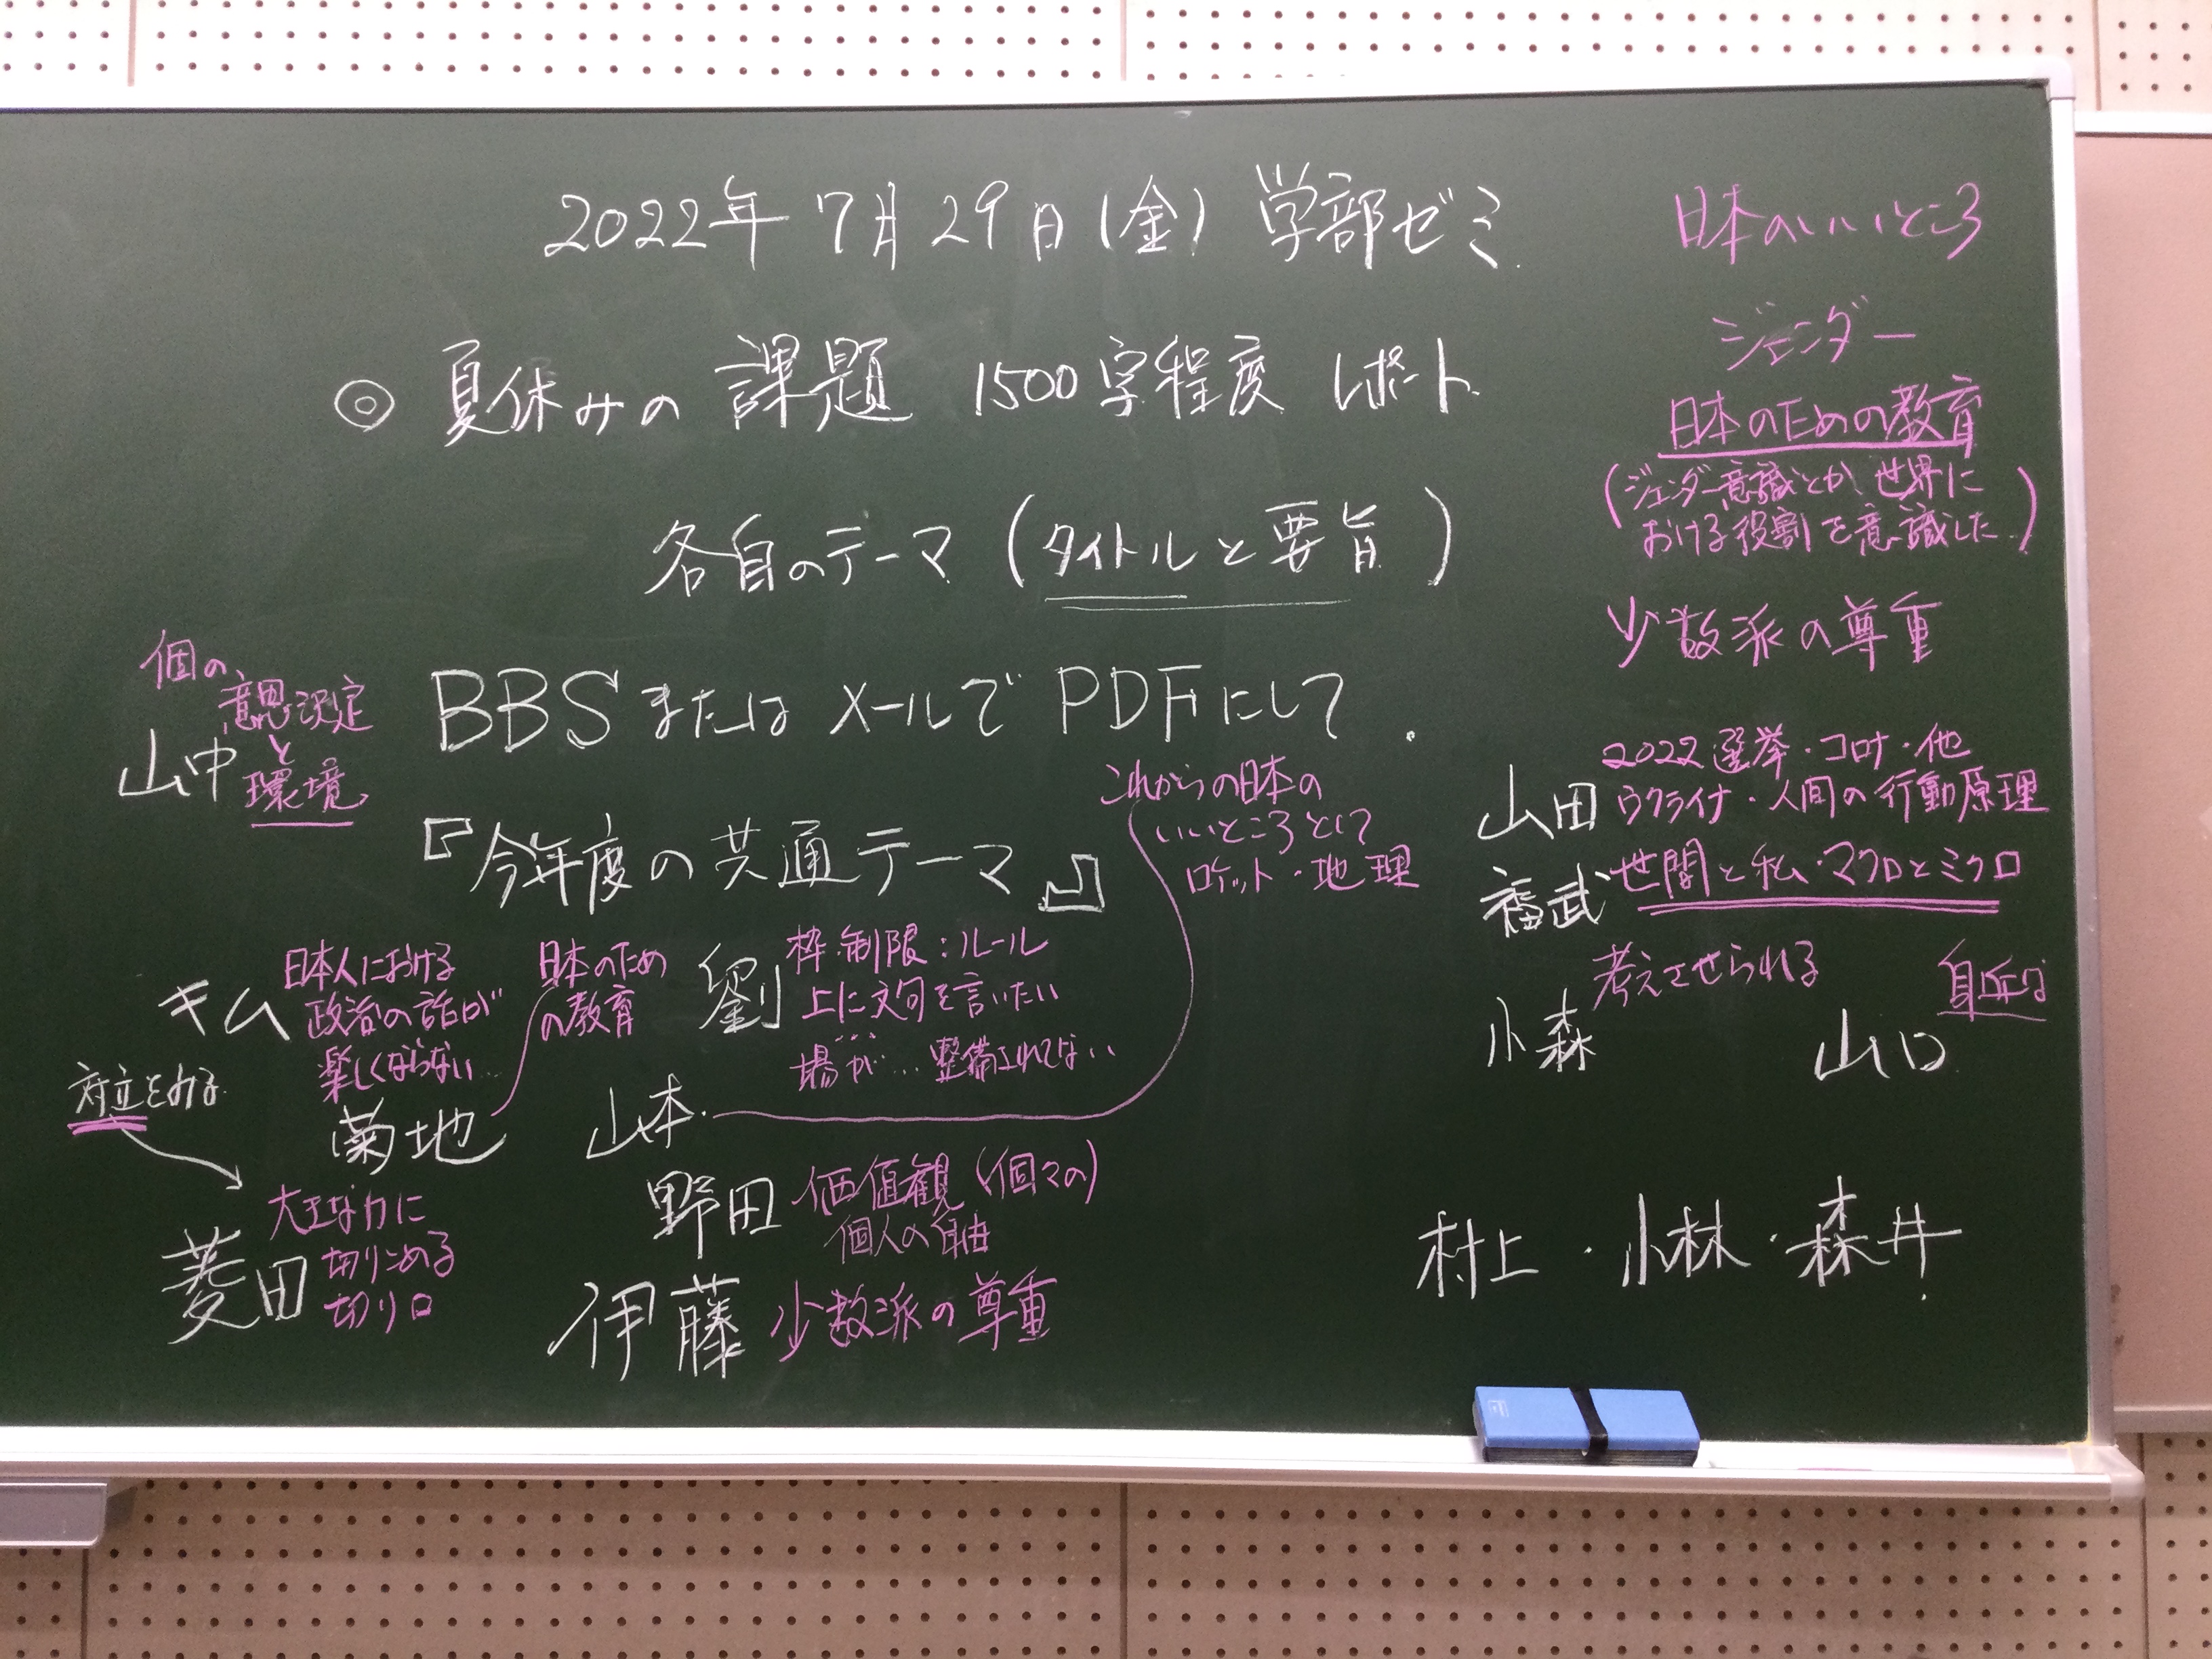 2022年7月29日(金) 学部ゼミ
◎ 夏休みの課題 1500字程度 レポート
各自のテーマ (タイトルと要旨)
BBSまたはメールでPDFにして.
『今年度の共通テーマ』
日本のいいところ
ジェンダー
日本のための教育
(ジェンダー意識とか、世界に
おける役割を意識した..)
少数派の尊重
個の
意思決定
と
環境
山中
これからの日本の
いいところとして
ロケット・地理
山田
2022選挙・コロナ・他
ウクライナ・人間の行動原理
福武
世間と私・マクロとミクロ
考えさせられる
小森
身近な
山口
キム
日本人における
政治の話が
楽しくならない
日本のため
の教育
菊地
劉
枠・制限:ルール
上に文句を言いたい
場が... 整備されてない
山本
対立とみる
菱田
大きな力に
切りこめる
切り口
野田
価値観(個々の)
個人の自由
伊藤
少数派の尊重
村上・小林・森井